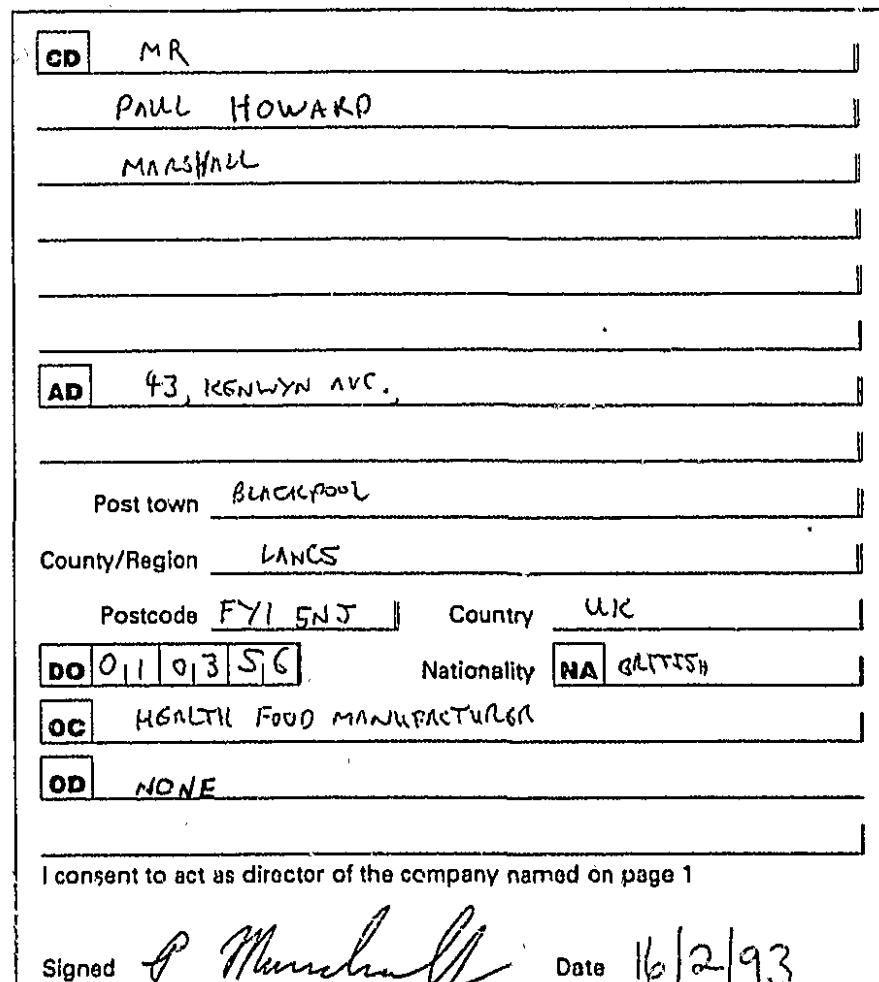 CD MR
PAUL HOWARD
MARSHALL
AD 43, KENWYN AVE.,
Post town BLACKPOOL
County/Region LANCS
Postcode FY1 5NJ Country UK
DO 01 03 56 Nationality NA BRITISH
OC HEALTH FOOD MANUFACTURER
OD NONE
I consent to act as director of the company named on page 1
Signed P Marshall Date 16/2/93